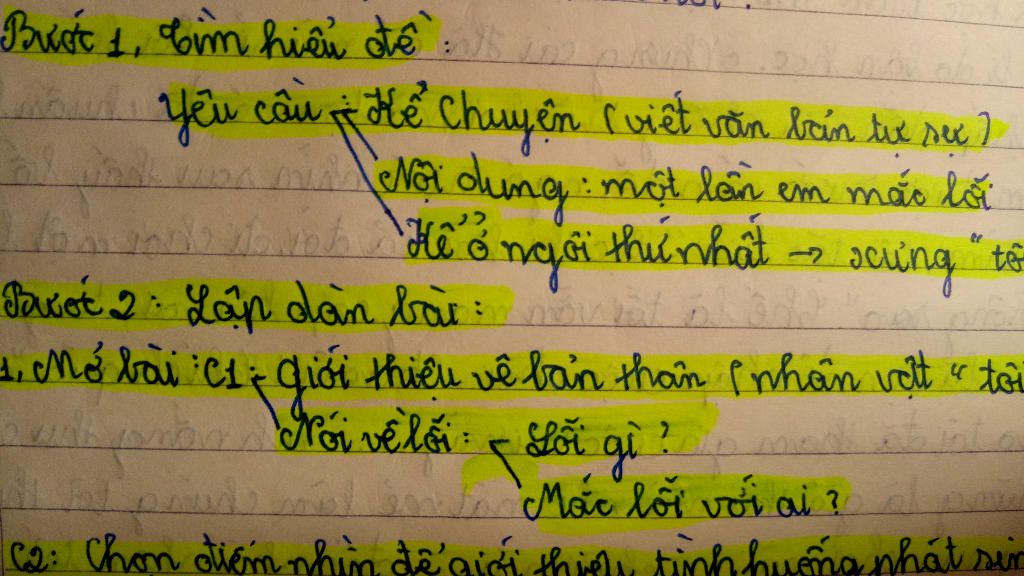 Bước 1, Tìm hiểu đề :
Yêu cầu - Kể chuyện (viết văn bản tự sự)
Nội dung : một lần em mắc lỗi
Kể ở ngôi thứ nhất → xưng "tô
Bước 2 : Lập dàn bài :
1, Mở bài : C1 - giới thiệu về bản thân (nhân vật "tôi
Nói về lỗi : - Lỗi gì ?
Mắc lỗi với ai ?
C2: Chọn điểm nhìn để giới thiệu tình huống